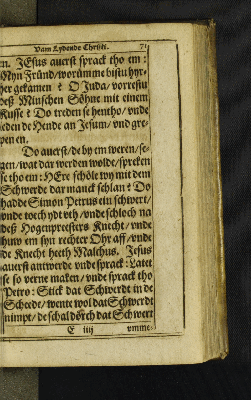 Vam Lydende Christi. 71
en. JEsus auerst sprack tho em:
Myn Fründ/worümme bistu hyr-
her gekamen? O Juda/vorrestu
deß Minschen Söhne mit einem
Kusse? Do treden se hentho/vnde
leden de Hende an Jesum/vnd gre-
pen en.
Do auerst/de by em weren/se-
gen/wat dar werden wolde/spreken
se tho em: HEre schöle wy mit dem
Schwerde dar manck schlan? Do
hadde Simon Petrus ein schwert/
vnde toech ydt vth/vnde schloch na
deß Hogenpreesters Knecht/vnde
huw em syn rechter Ohr aff/vnde
de Knecht heeth Malchus. Jesus
auerst antwerde vnde sprack: Latet
se so verne maken/vnde sprack tho
Petro: Stick dat Schwerdt in de
Scheede/wente wol dat Schwerdt
nimpt/de schal dörch dat Schwert
E iiij vmme-